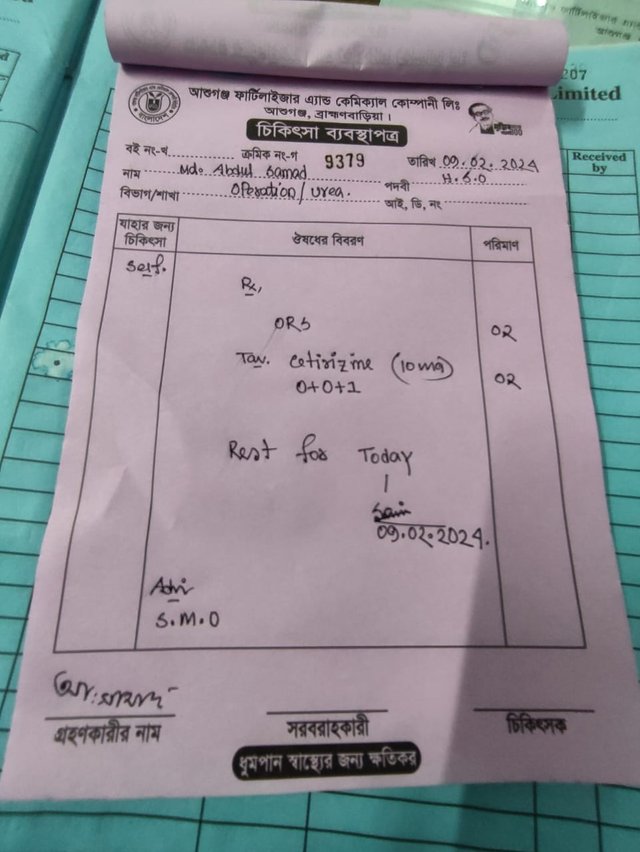 207
Limited
Received
by
আশুগঞ্জ ফার্টিলাইজার এ্যান্ড কেমিক্যাল কোম্পানী লিঃ
আশুগঞ্জ, ব্রাহ্মণবাড়িয়া।
চিকিৎসা ব্যবস্থাপত্র
বই নং-খ ক্রমিক নং-গ 9379 তারিখ 09.02.2024
নাম Md. Abdul Samad পদবী H.S.O
বিভাগ/শাখা Operation/Urea. আই, ডি, নং
যাহার জন্য চিকিৎসা ঔষধের বিবরণ পরিমান
Self.
Rx,
ORS 02
Tab. Cetirizine (10mg) 02
0+0+1
Rest for Today
09.02.2024.
S.M.O
গ্রহণকারীর নাম সরবরাহকারী চিকিৎসক
ধুমপান স্বাস্থ্যের জন্য ক্ষতিকর